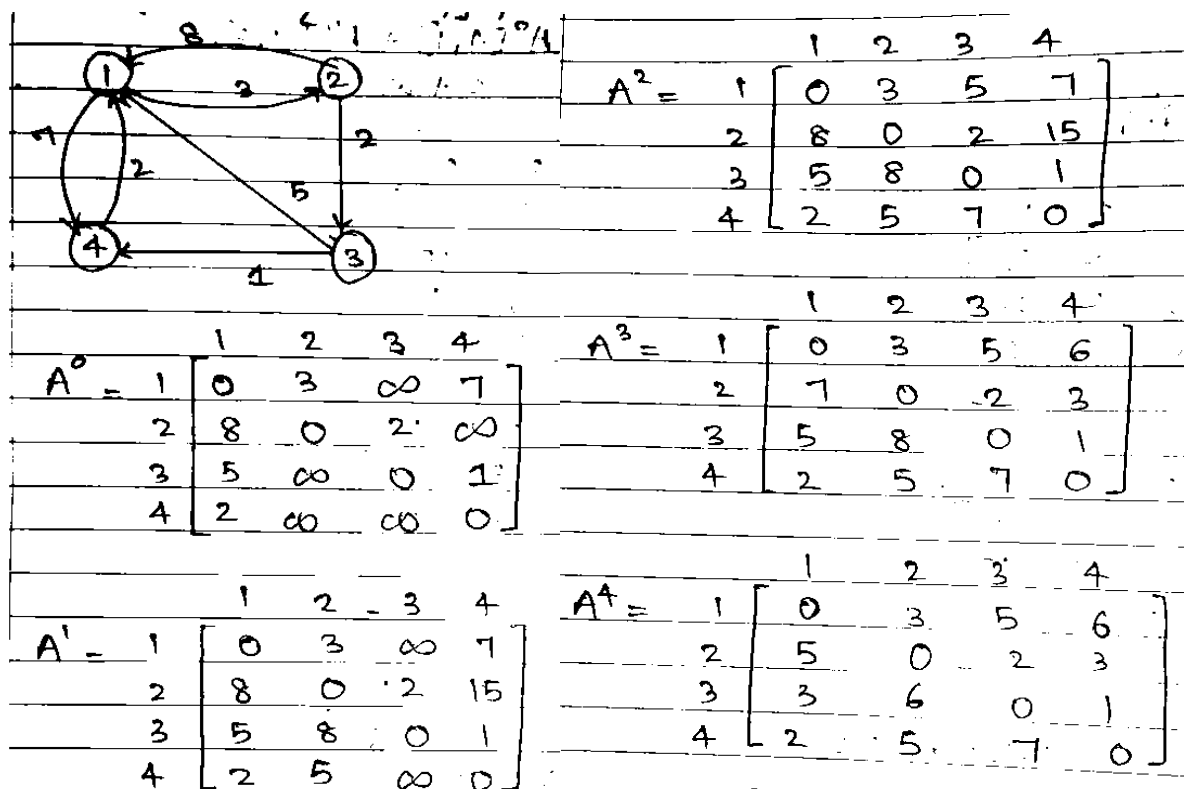 8
1
3
2
7
2
2
5
4
3
1
1 2 3 4
A⁰ = 1 [0 3 ∞ 7]
2 [8 0 2 ∞]
3 [5 ∞ 0 1]
4 [2 ∞ ∞ 0]
1 2 3 4
A¹ = 1 [0 3 ∞ 7]
2 [8 0 2 15]
3 [5 8 0 1]
4 [2 5 ∞ 0]
1 2 3 4
A² = 1 [0 3 5 7]
2 [8 0 2 15]
3 [5 8 0 1]
4 [2 5 7 0]
1 2 3 4
A³ = 1 [0 3 5 6]
2 [7 0 2 3]
3 [5 8 0 1]
4 [2 5 7 0]
1 2 3 4
A⁴ = 1 [0 3 5 6]
2 [5 0 2 3]
3 [3 6 0 1]
4 [2 5 7 0]